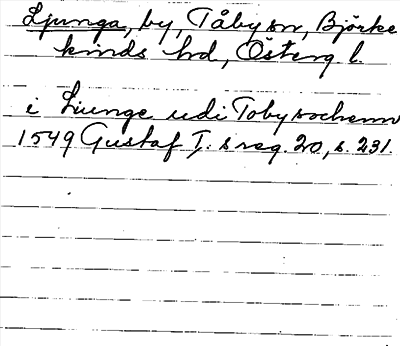 Ljunga, by, Tåby sn, Björke
kinds hd, Österg. l.
i Liunge udi Toby sochenn
1549 Gustaf I:s reg. 20, s. 231.